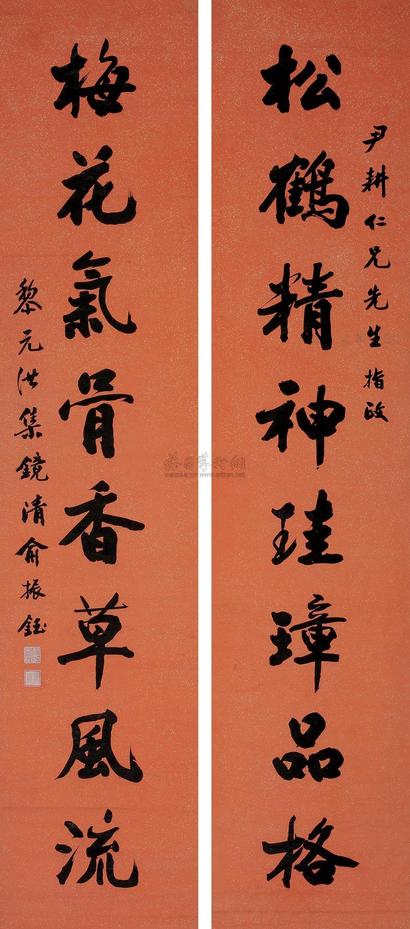 尹耕仁兄先生指政
松鶴精神珪璋品格
梅花氣骨香草風流
黎元洪集鏡清俞振鈺